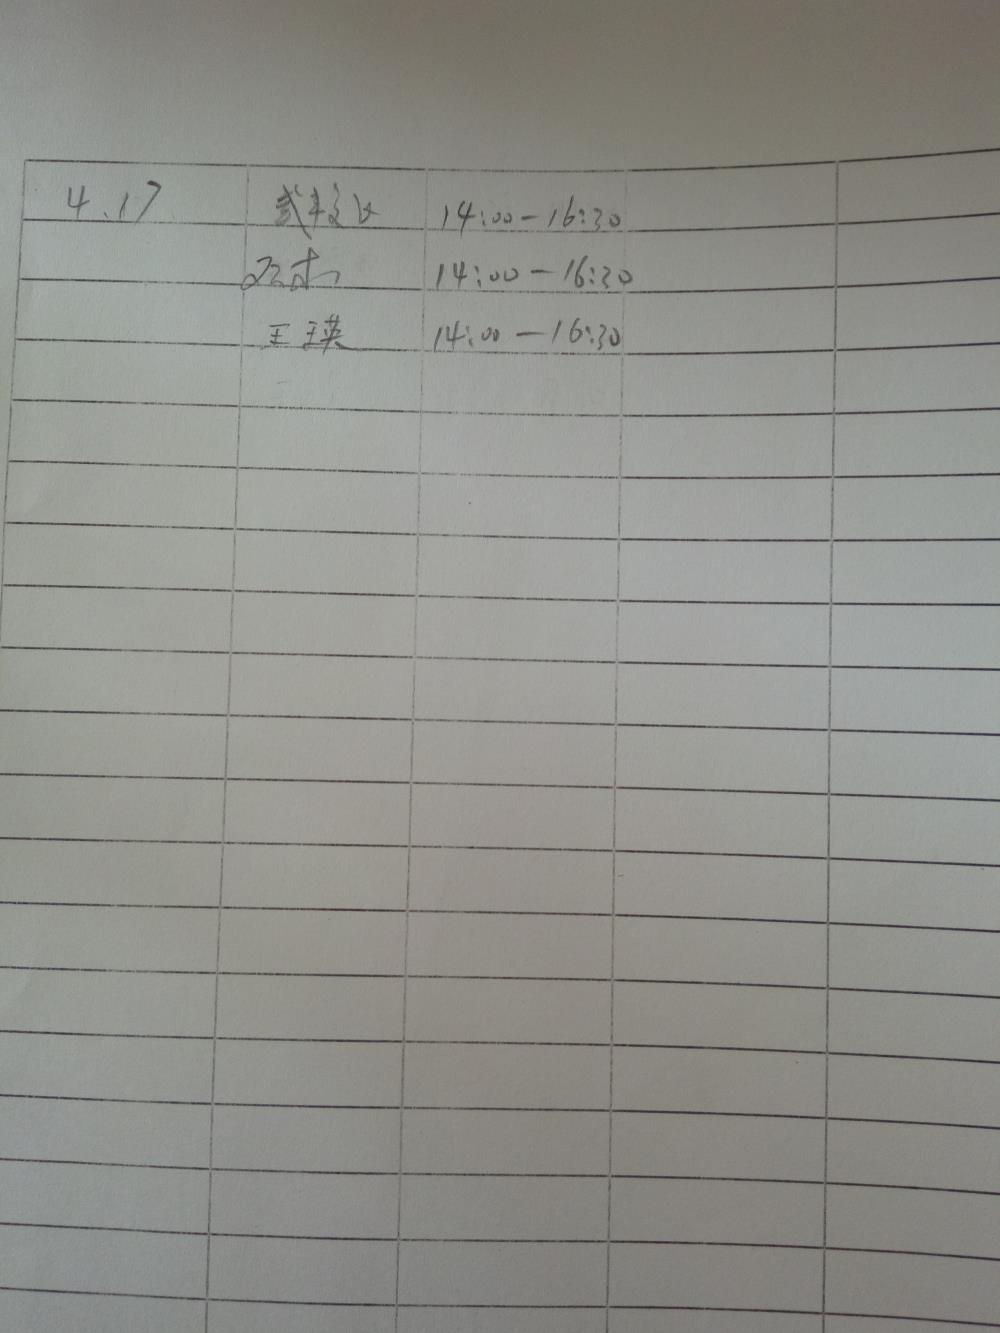 4.17 14:00-16:30
14:00-16:30
王瑛 14:00-16:30